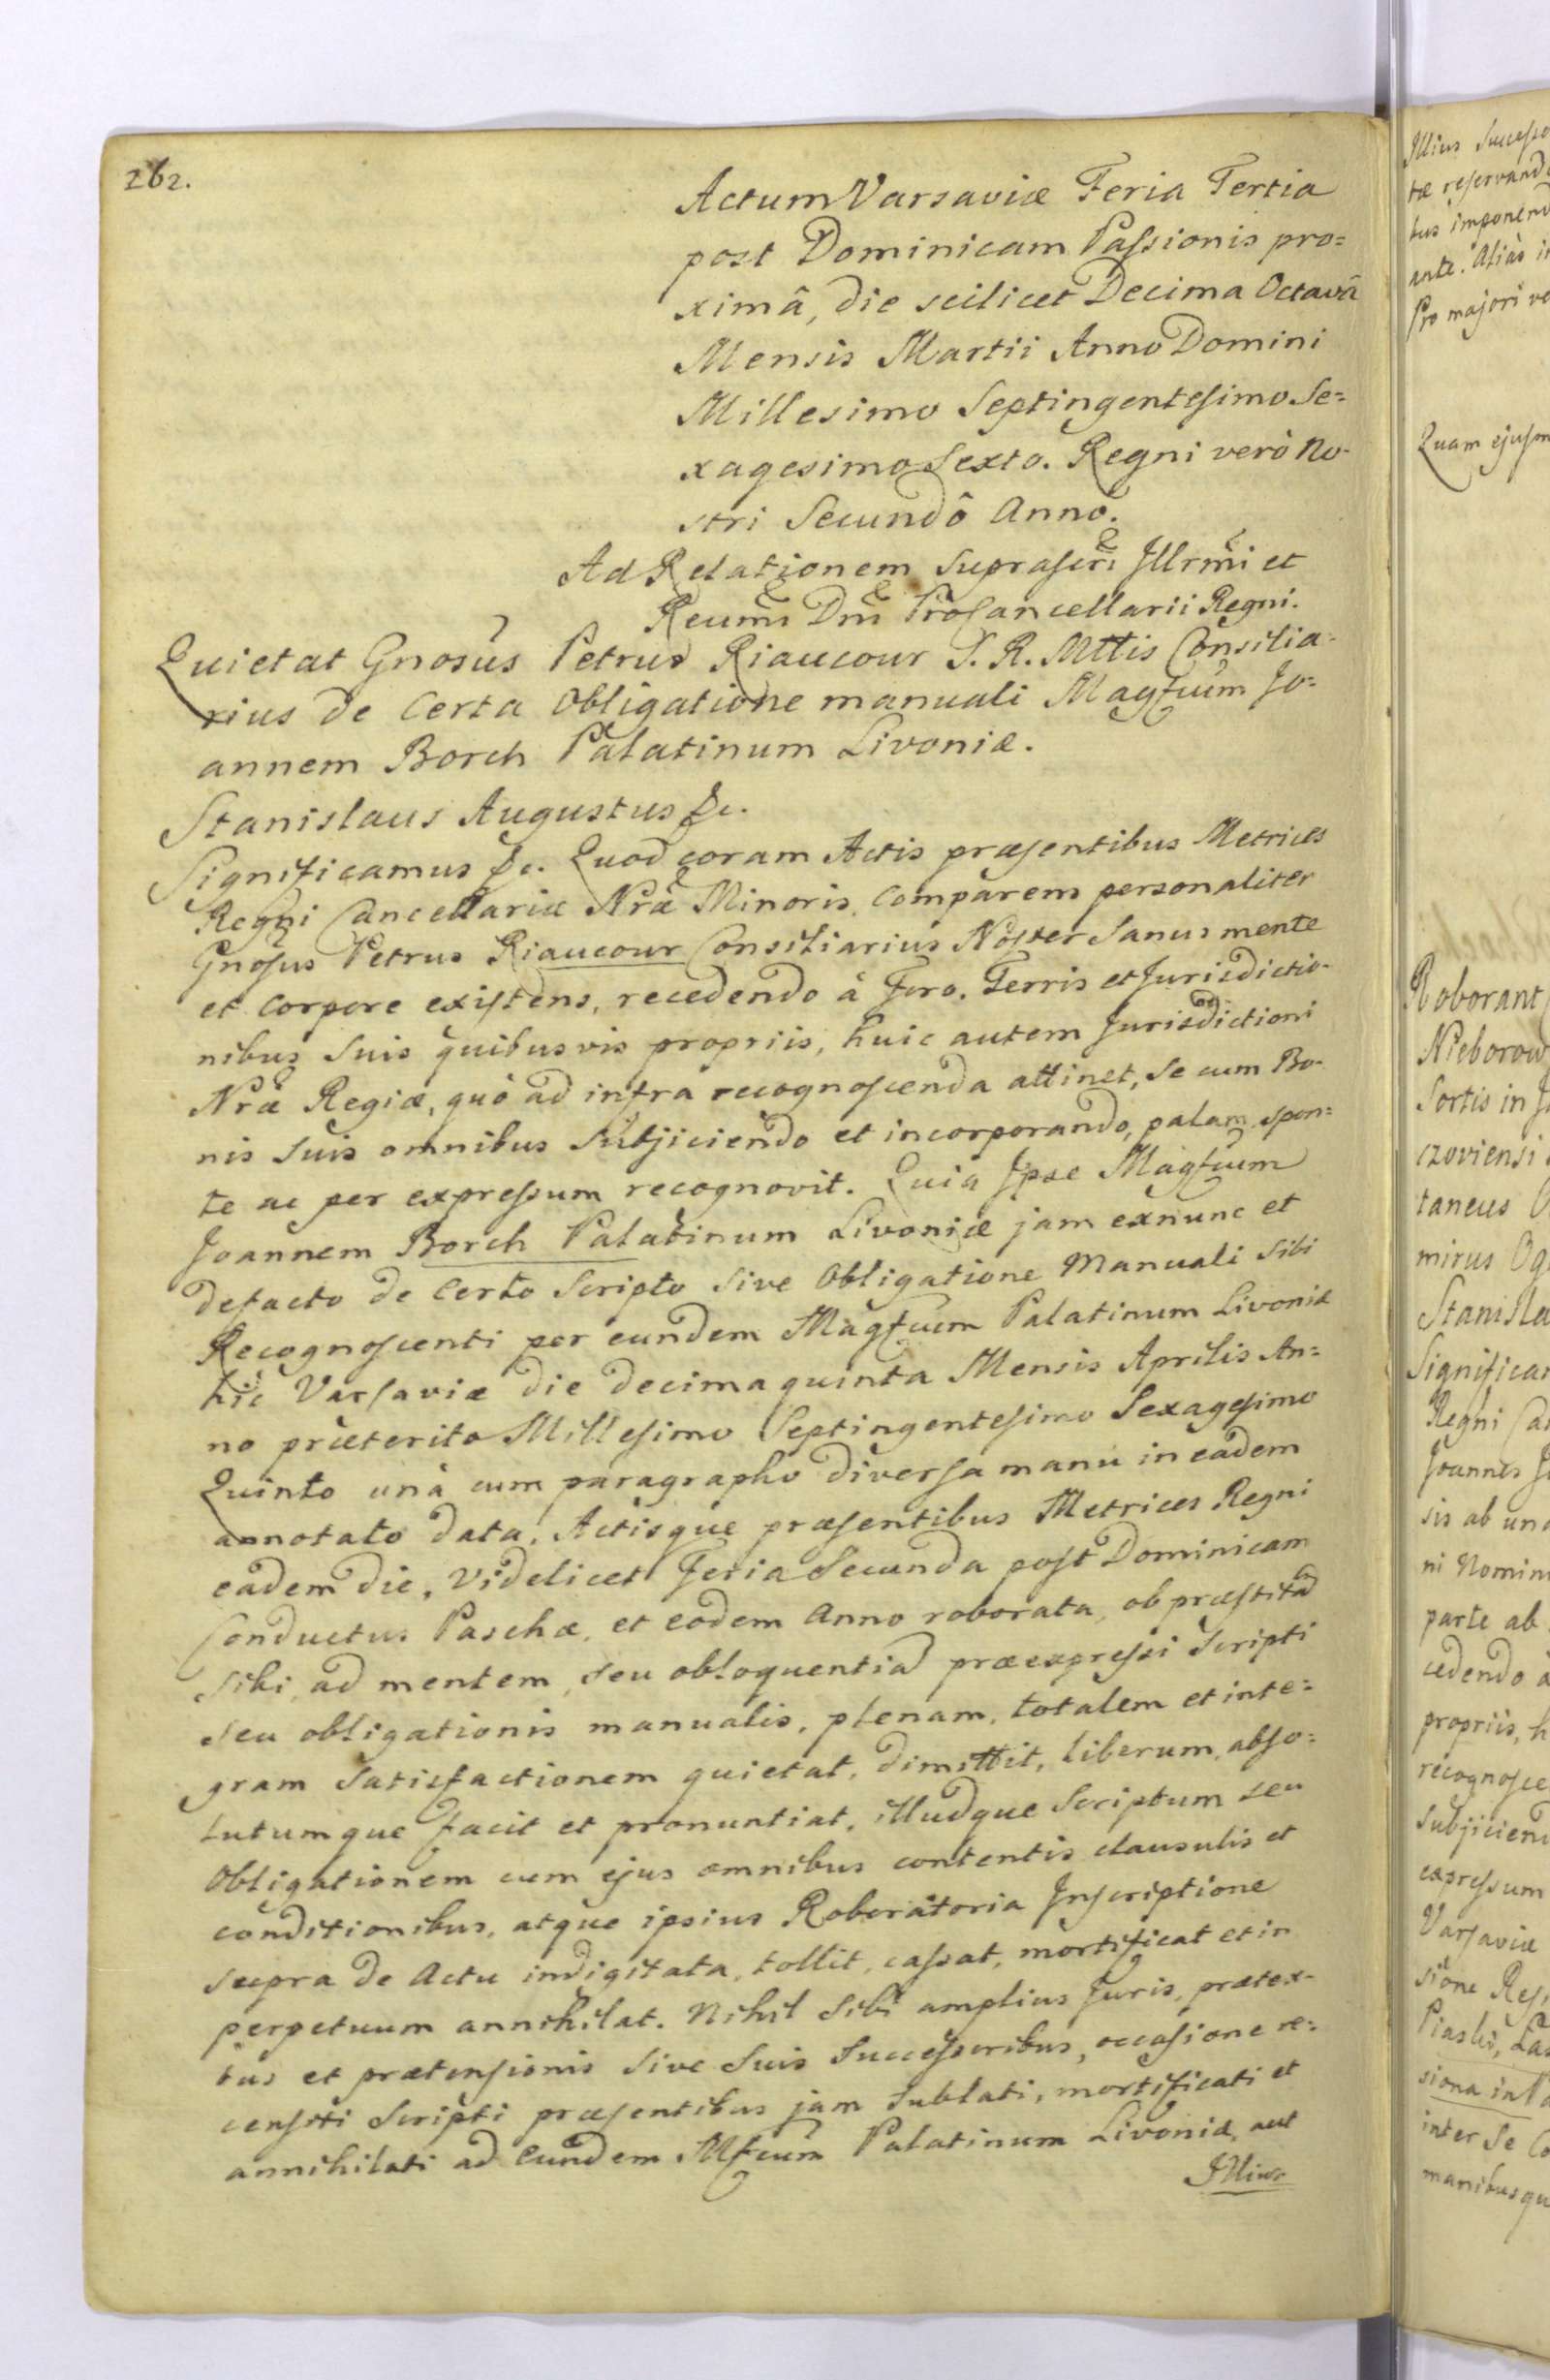 262.
Actum Varsaviæ Feria Tertia
post Dominicam Passionis pro=
ximâ, die scilicet Decima Octavâ
Mensis Martii Anno Domini
Millesimo Septingentesimo Se=
xagesimo Sexto. Regni verò No-
stri Secundô Anno.
Ad Relationem suprascri Illrmi et
Reumi Dni ProCancellarii Regni.
Quietat Gnosus Petrus Riaucour S. R. Mttis Consilia-
rius de Certa Obligatione manuali Magfcum Jo=
annem Borch Palatinum Livoniæ.
Stanislaus Augustus &c.
Significamus &c. Quod coram Actis præsentibus Metrices
Regni Cancellariæ Nræ Minoris, Comparens personaliter
Gnosus Petrus Riaucour Consiliarius Noster Sanus mente
et Corpore existens, recedendo à Foro, Terris et Jurisdictio-
nibus Suis quibusvis propriis, huic autem Jurisdictioni
Nræ Regiæ, quò ad infra recognoscenda attinet, Se cum Bo-
nis Suis omnibus Subjiciendo et incorporando, palam spon=
te ac per expressum recognovit. Quia Ipse Magfcum
Joannem Borch Palatinum Livoniæ jam exnunc et
defacto de Certo Scripto Sive Obligatione Manuali Sibi
Recognoscenti per eundem Magfcum Palatinum Livoniæ
hic Varsaviæ die decima quinta Mensis Aprilis An=
no præterito Millesimo Septingentesimo Sexagesimo
Quinto unà cum paragrapho diversa manu in eadem
annotato data, Actisque præsentibus Metrices Regni
eadem die, videlicet Feria Secunda post Dominicam
Conductus Paschæ, et eodem Anno roborata, ob præstitã
sibi, ad mentem, seu obloquentiã præexpressi Scripti
seu obligationis manualis, plenam, totalem et inte=
gram Satisfactionem quietat, dimittit, liberum, abso=
lutumque facit et pronuntiat, illudque Scriptum seu
Obligationem cum ejus omnibus contentis clausulis et
conditionibus, atque ipsius Roboratoria Inscriptione
supra de Actu indigitata, tollit, cassat, mortificat et in
perpetuum annihilat. Nihil Sibi amplius Juris, prætex-
tus et prætensionis Sive Suis Successoribus, occasione re=
censiti Scripti præsentibus jam Sublati, mortificati et
annihilati ad Eundem Mfcum Palatinum Livoniæ, aut
Illius
Illius Successo
tæ reservand
tus imponend
ante. Alias i
Pro majori
Quam ejusm
Roborant
Nieborow
Sortis in
czoviensi
taneus
mirus Og
Stanisla
Significa
Regni Ca
Joannes
sis ab una
ni Nomin
parte ab
cedendo à
propriis, h
recognosce
Subjiciend
expressum
Varsaviæ
sione Res
Piaski, Las
siona int
inter Se Co
manibusqu